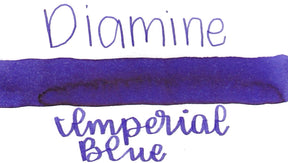 Diamine
Imperial
Blue